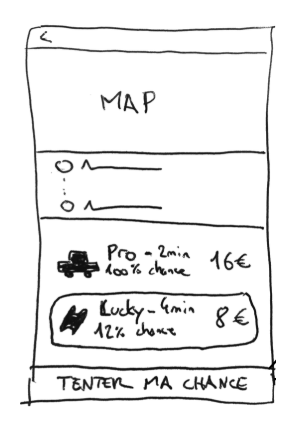 <
MAP
Pro - 2min
100% chance
16€
Lucky - 4min
12% chance
8€
TENTER MA CHANCE